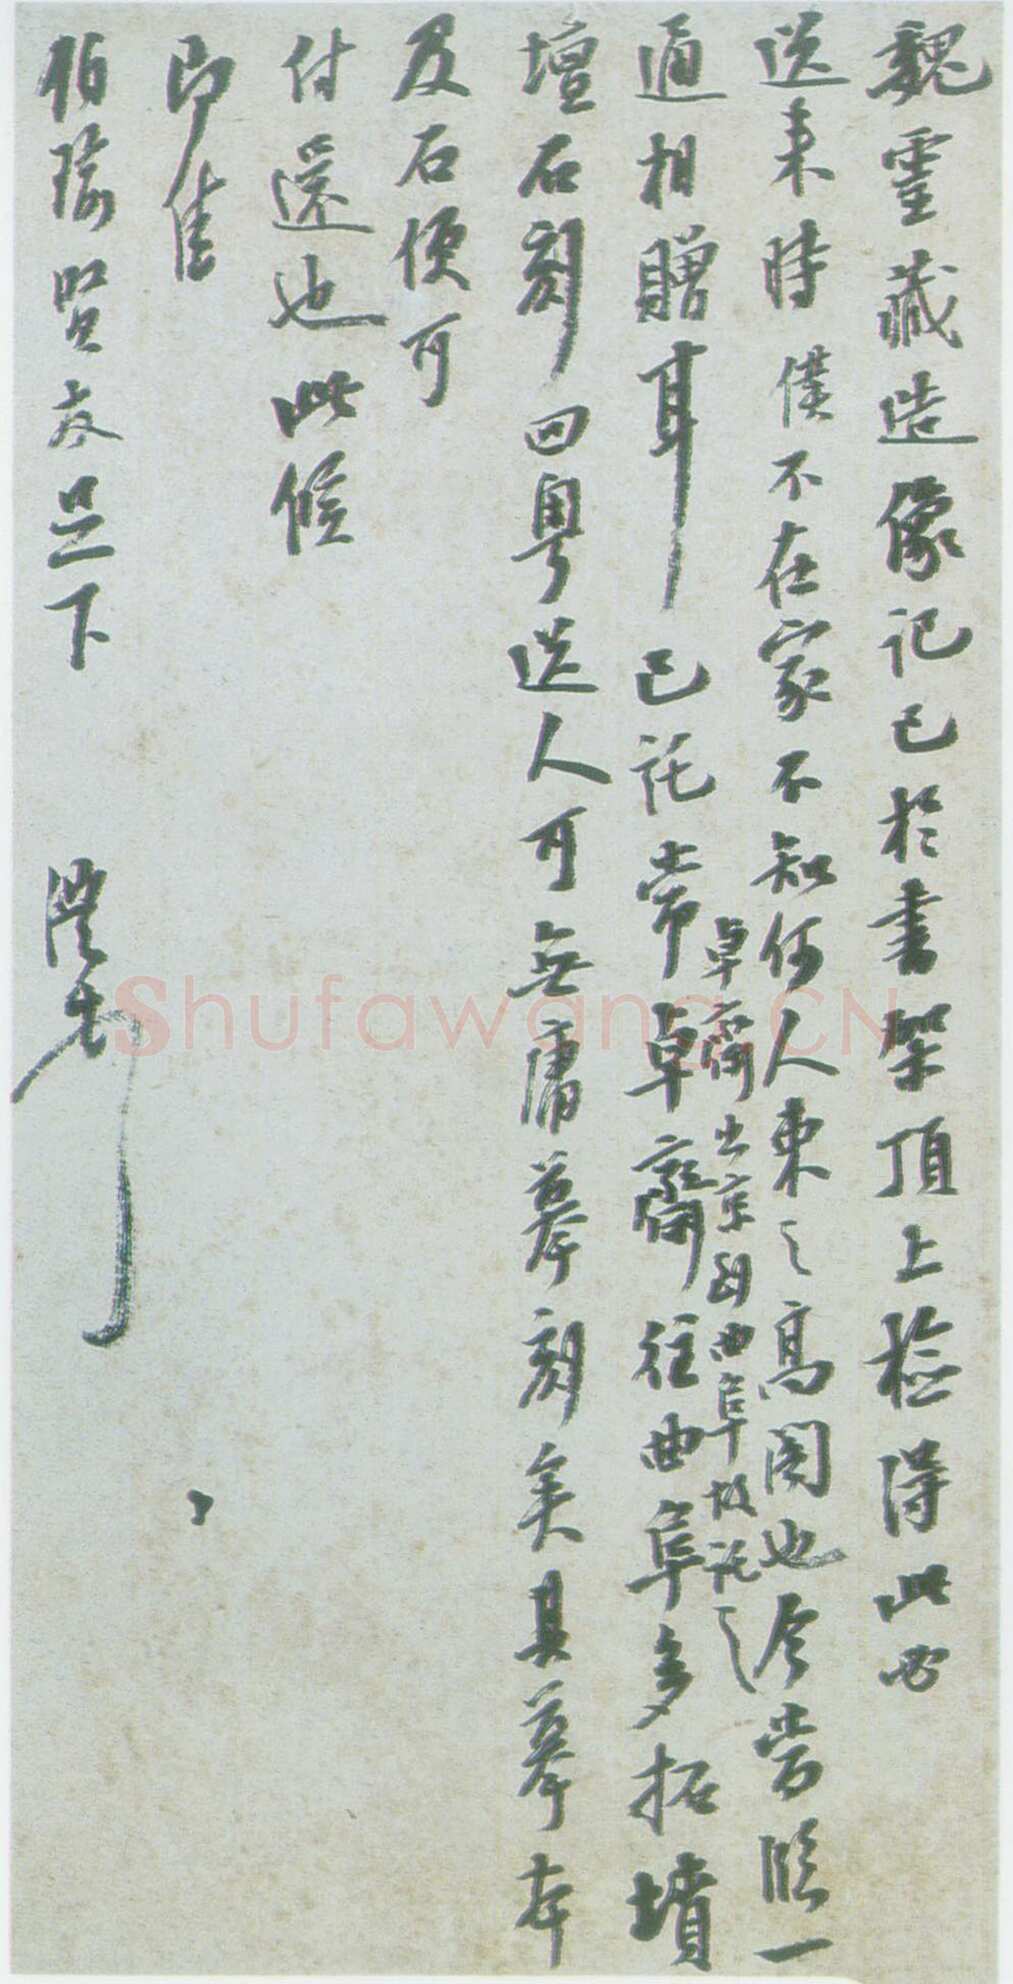 魏靈藏造像記已於書架頂上檢得此必
送來時僕不在家不知何人束之高閣也今當臨一
通相贈耳已託常卓齋往曲阜多拓墳
卓齋出京到曲阜故託之
壇石刻回粵送人可無庸摹刻矣其摹本
及石便可
付還也此候
即佳
伯瑜賢友足下
澧
ShufawangCN